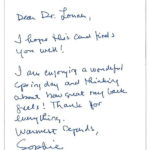 Dear Dr. Lonen,
I hope this card finds
you well!
I am enjoying a wonderful
Spring day and thinking
about how great my back
feels! Thanks for
everything.
Warmest Regards,
Sophie